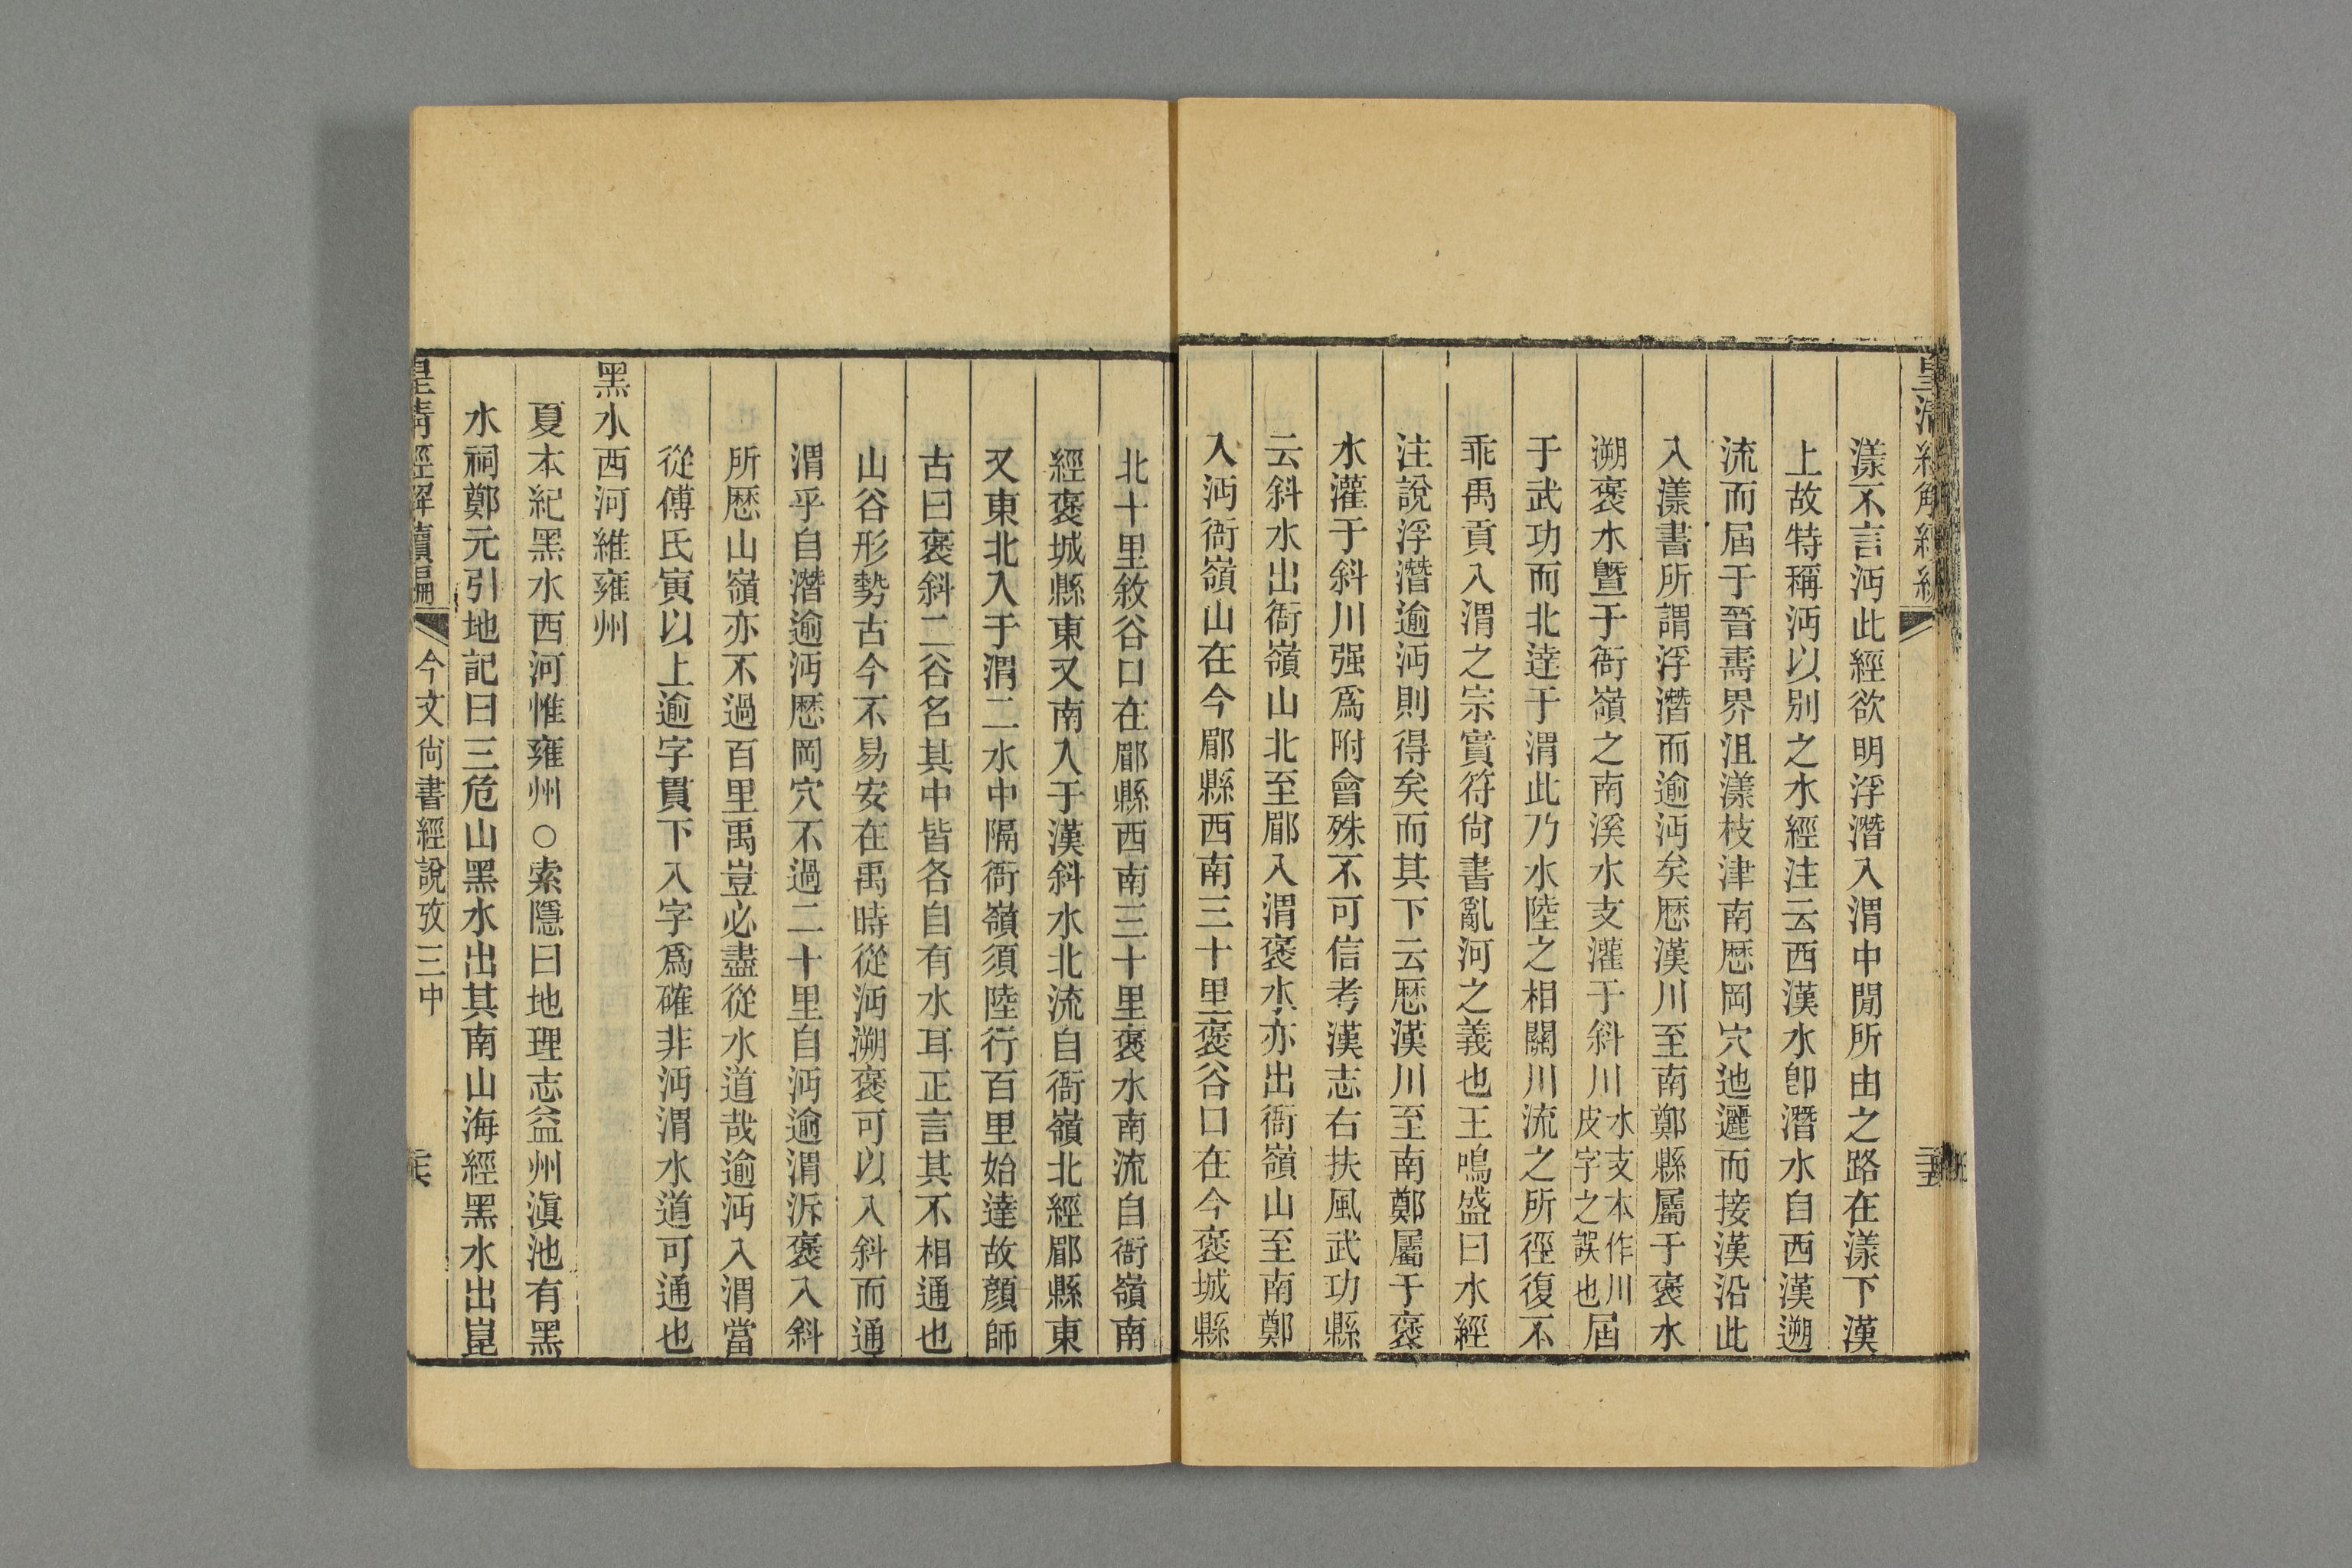 漾不言沔此經欲明浮潛入渭中閒所由之路在漾下漢
上故特稱沔以別之水經注云西漢水卽潛水自西漢遡
流而屆于晉壽界沮漾枝津南歷岡穴迆邐而接漢沿此
入漾書所謂浮潛而逾沔矣歷漢川至南鄭縣屬于褒水
溯褒水曁于衙嶺之南溪水支灌于斜川水支本作川皮字之誤也屆
于武功而北達于渭此乃水陸之相關川流之所徑復不
乖禹貢入渭之宗實符尙書亂河之義也王鳴盛曰水經
注說浮潛逾沔則得矣而其下云歷漢川至南鄭屬于褒
水灌于斜川强爲附會殊不可信考漢志右扶風武功縣
云斜水出衙嶺山北至郿入渭褒水亦出衙嶺山至南鄭
入沔衙嶺山在今郿縣西南三十里褒谷口在今褒城縣
北十里敘谷口在郿縣西南三十里褒水南流自衙嶺南
經褒城縣東又南入于漢斜水北流自衙嶺北經郿縣東
又東北入于渭二水中隔衙嶺須陸行百里始達故顏師
古曰褒斜二谷名其中皆各自有水耳正言其不相通也
山谷形勢古今不易安在禹時從沔溯褒可以入斜而通
渭乎自潛逾沔歷岡穴不過二十里自沔逾渭泝褒入斜
所歷山嶺亦不過百里禹豈必盡從水道哉逾沔入渭當
從傅氏寅以上逾字貫下入字爲確非沔渭水道可通也
黑水西河維雍州
夏本紀黑水西河惟雍州○索隱曰地理志益州滇池有黑
水祠鄭元引地記曰三危山黑水出其南山海經黑水出崑
皇清經解續編
今文尙書經說攷三中